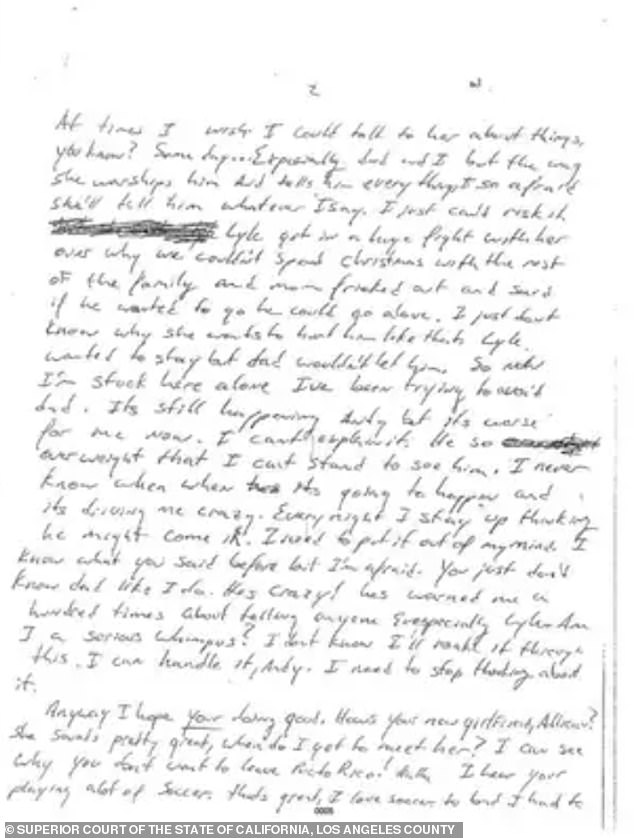 2
At times I wish I could talk to her about things,
you know? Some day... Especially dad and I but the way
she worships him and tells him everything I so afraid
she'll tell him whatever I say. I just can't risk it.
Lyle got in a huge fight with her
over why we couldn't spend christmas with the rest
of the family and mom freaked out and said
if he wanted to go he could go alone. I just dont
know why she wants to hurt him like that. Lyle
wanted to stay but dad wouldn't let him. So now
I'm stuck here alone I've been trying to avoid
dad. Its still happening Andy but its worse
for me now. I can't explain it. He so
overweight that I cant stand to see him. I never
know when when its going to happen and
its driving me crazy. Every night I stay up thinking
he might come in. I need to put it out of my mind. I
know what you said before but I'm afraid. You just don't
know dad like I do. Hes crazy! hes warned me a
hundred times about telling anyone especially Lyle. Am
I a serious whimpus? I dont know I'll make it through
this. I can handle it, Andy. I need to stop thinking about
it.
Anyway I hope your doing good. Hows your new girlfriend, Allison?
She sounds pretty great, when do I get to meet her? I can see
why you don't want to leave Puerto Rico! I hear your
playing alot of Soccer. thats great, I love soccer to but I had to
© SUPERIOR COURT OF THE STATE OF CALIFORNIA, LOS ANGELES COUNTY